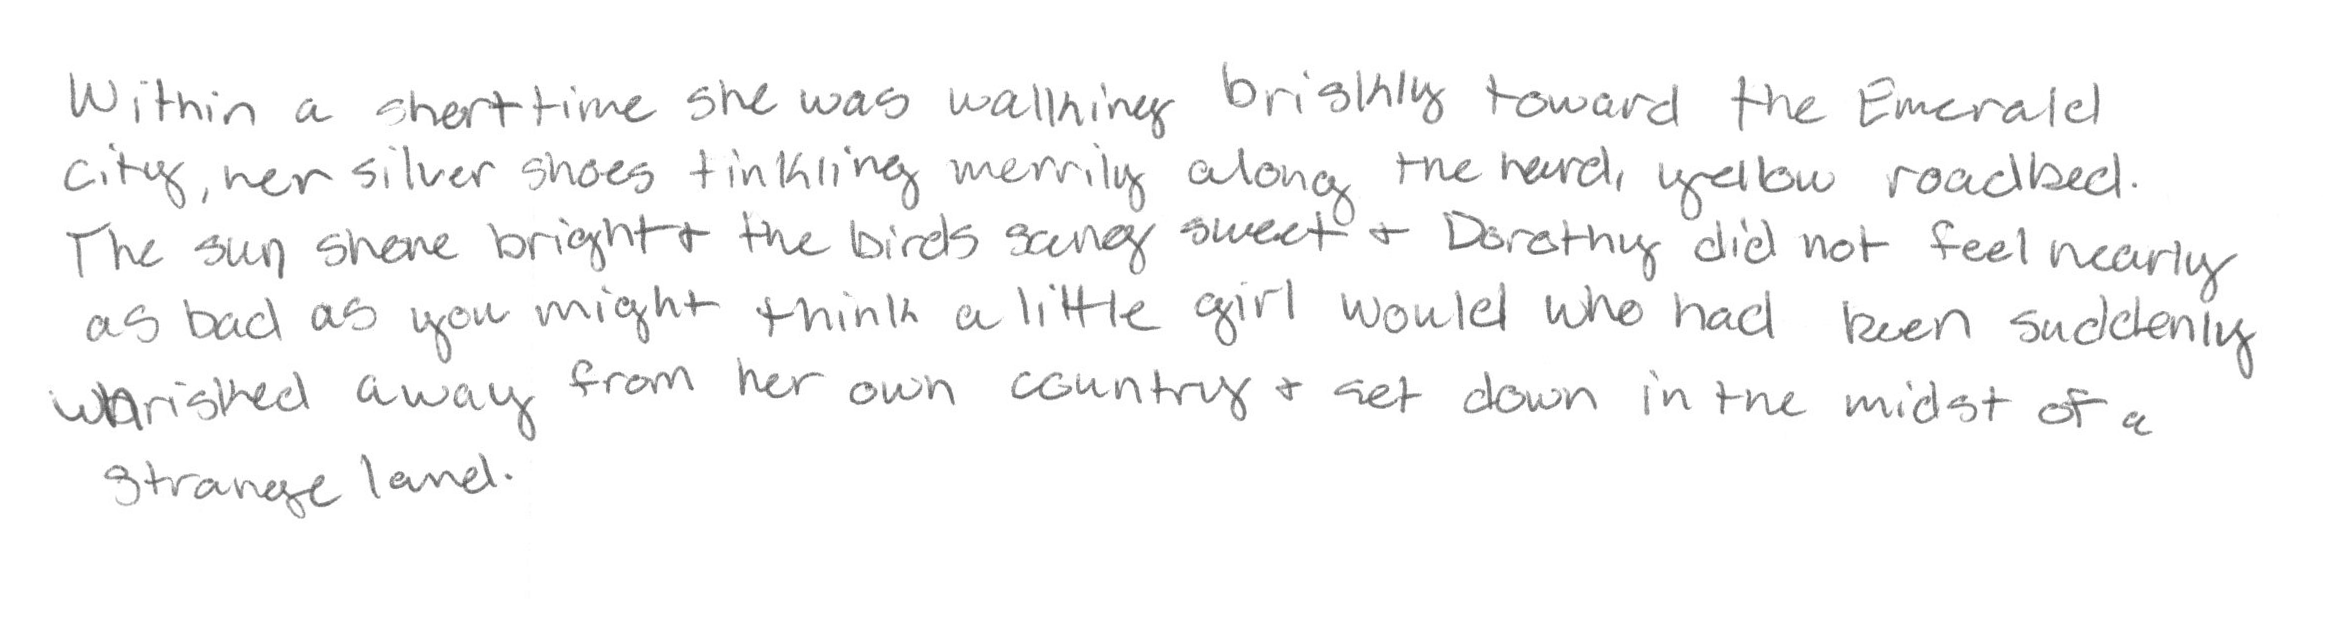 Within a short time she was walking briskly toward the Emerald
City, her silver shoes tinkling merrily along the hard, yellow roadbed.
The sun shone bright + the birds sang sweet + Dorothy did not feel nearly
as bad as you might think a little girl would who had been suddenly
whrished away from her own country + set down in the midst of a
strange land.